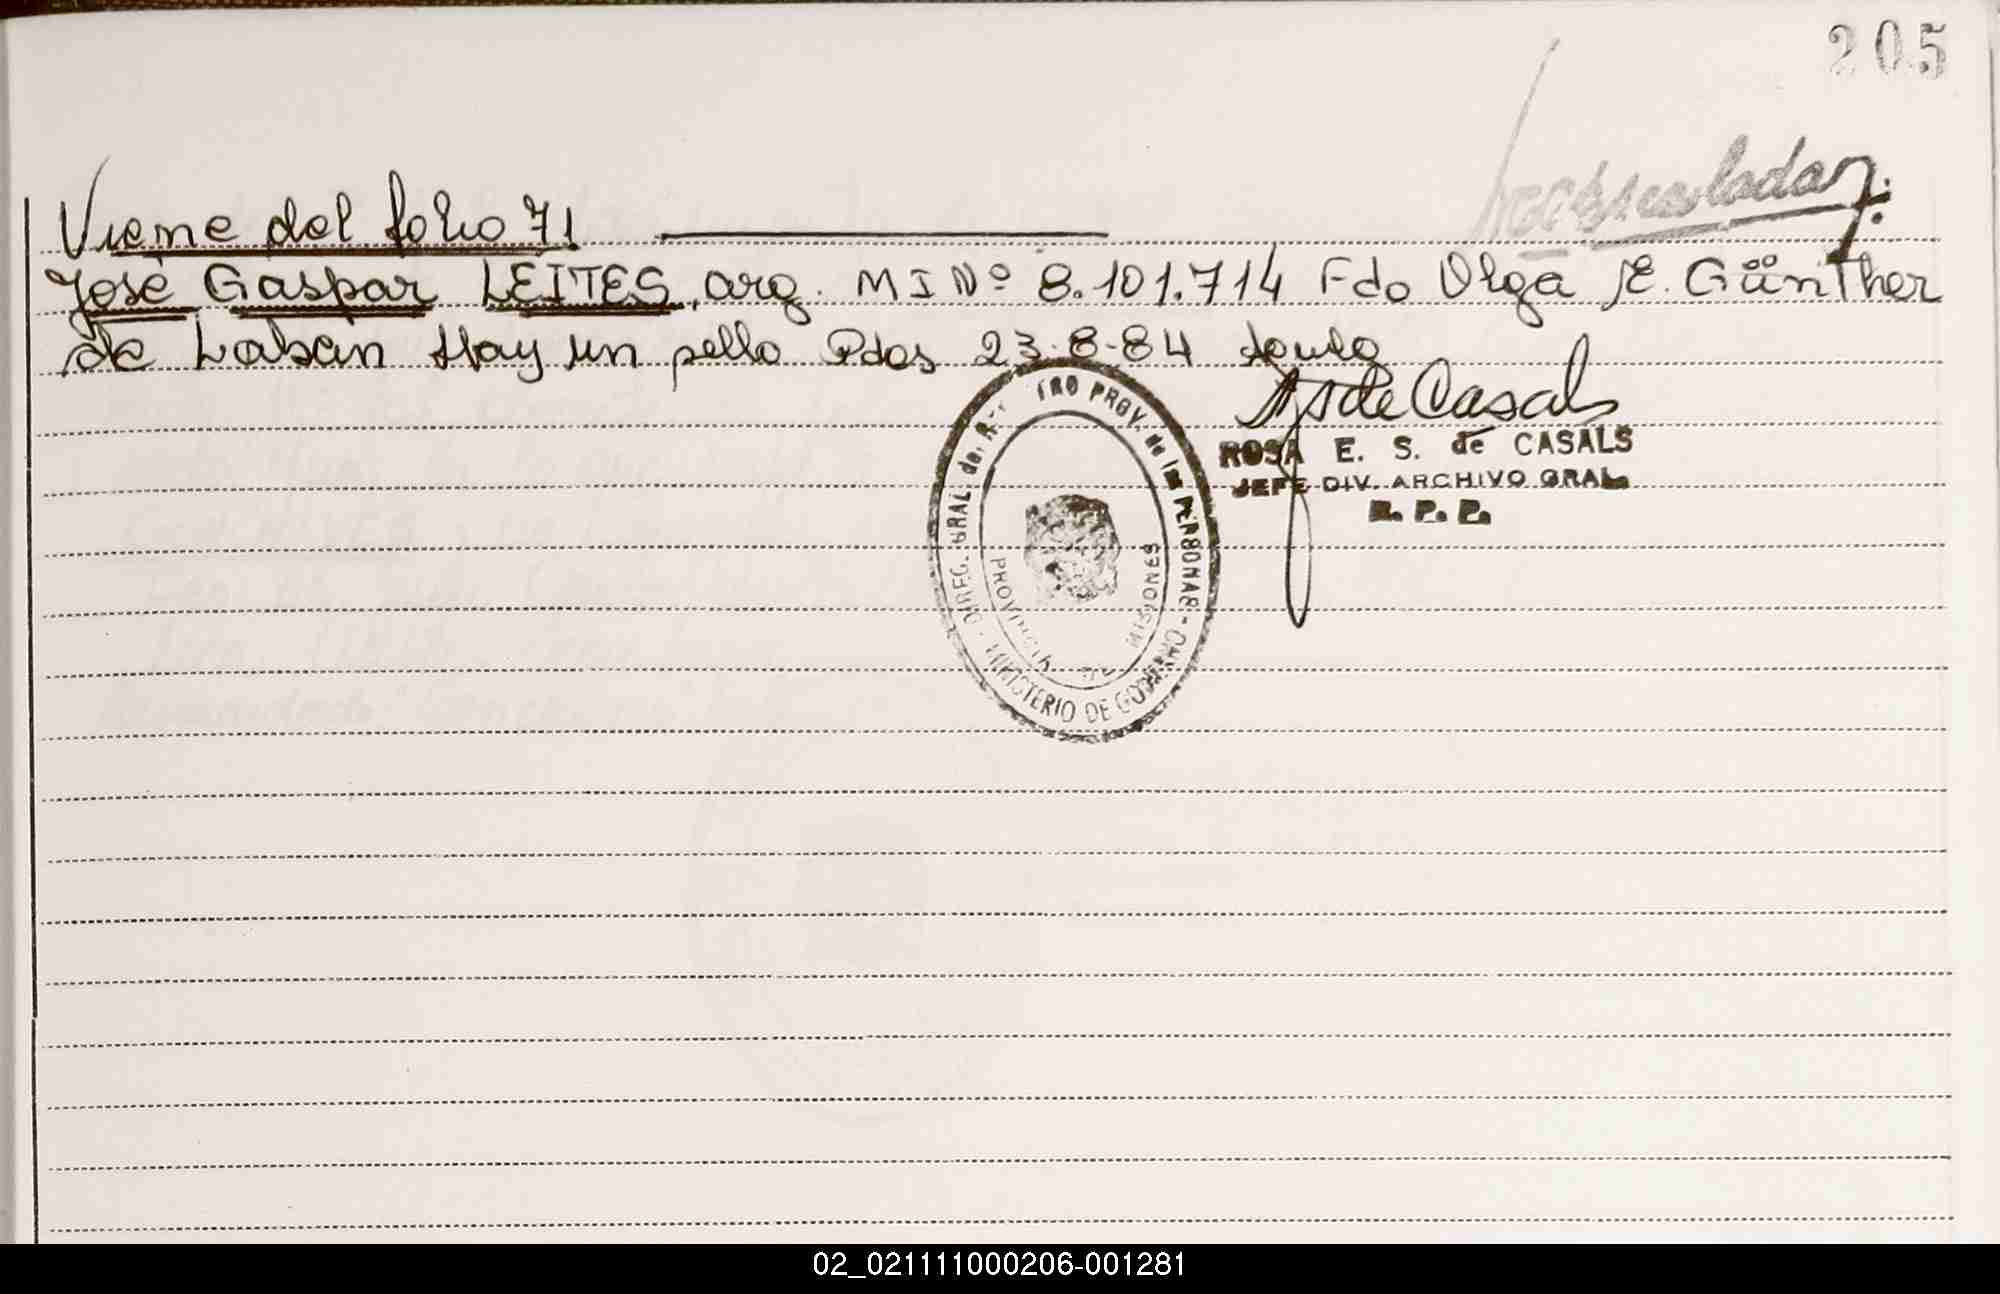 205
Viene del folio 71
José Gaspar LEITES, arg. M I Nº 8.101.714 Fdo Olga E. Günther
de Labán Hay un sello Pdas 23-8-84
de Casals
ROSA E. S. de CASALS
JEFE DIV. ARCHIVO GRAL
R. P. P.
DIREC. GRAL. del PROV. de las PERSONAS - MINISTERIO DE GOBIERNO
PROVINCIA DE MISIONES
02_021111000206-001281